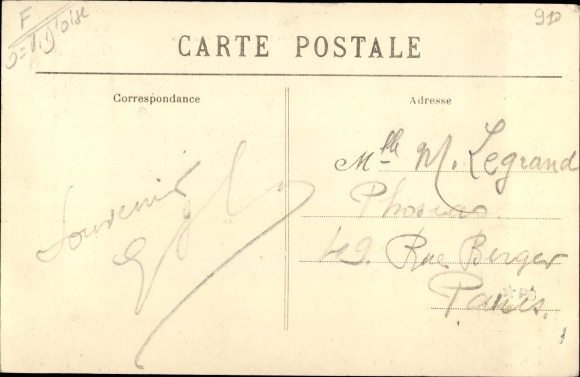 F
V. d'Oise
95
CARTE POSTALE
Correspondance
Adresse
Souvenir
Mlle M. Legrand
49. Rue Berger
Paris.